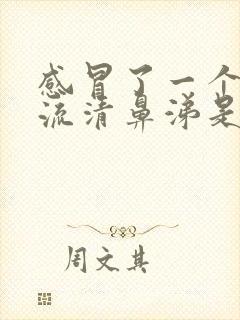 感冒了一个
流清鼻涕是
周文其